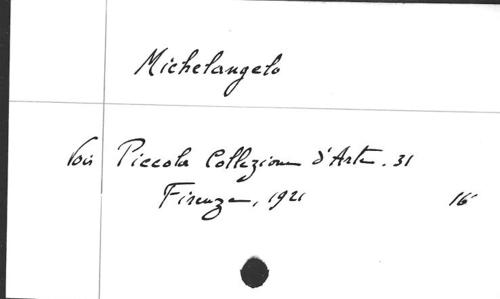 Michelangelo
Voir Piccola Collezione d'Arte. 31
Firenze, 1921 16°